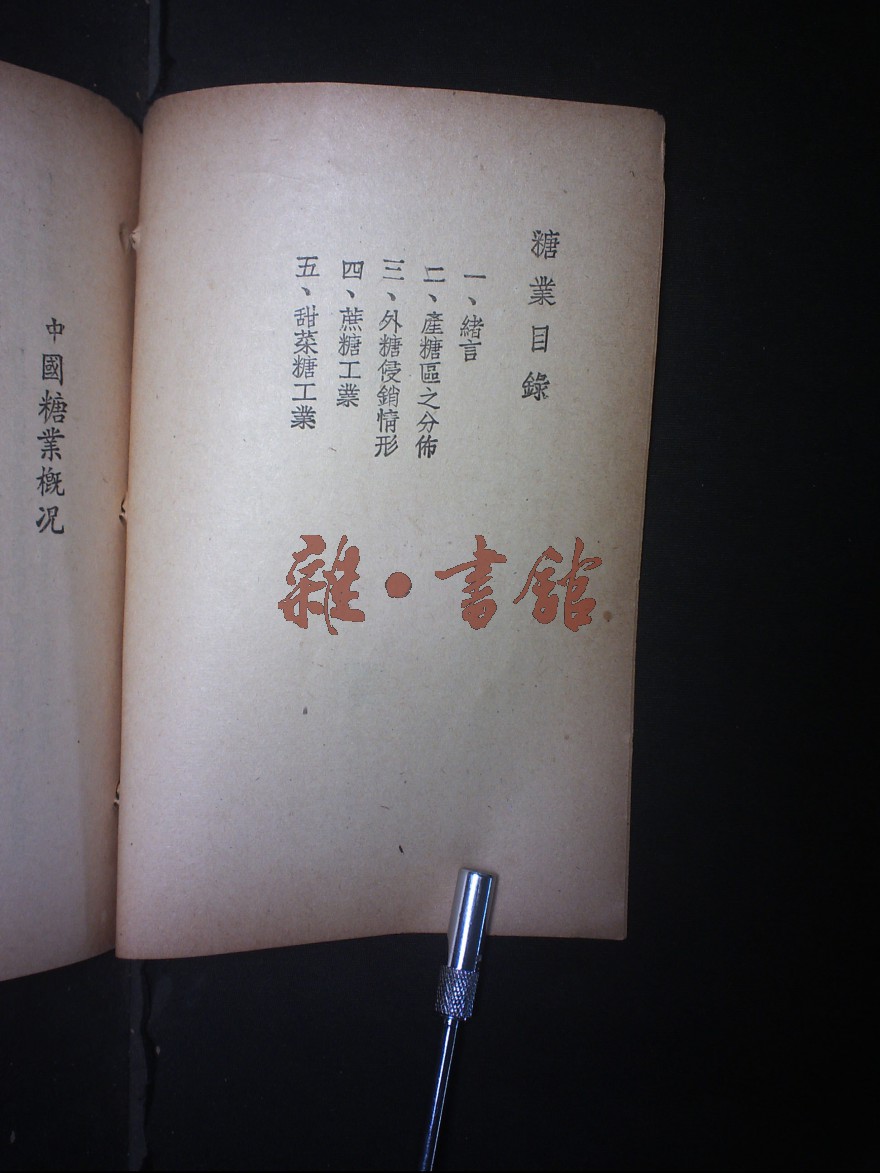 糖業目錄
一、緒言
二、產糖區之分佈
三、外糖侵銷情形
四、蔗糖工業
五、甜菜糖工業
中國糖業概況
雜·書館